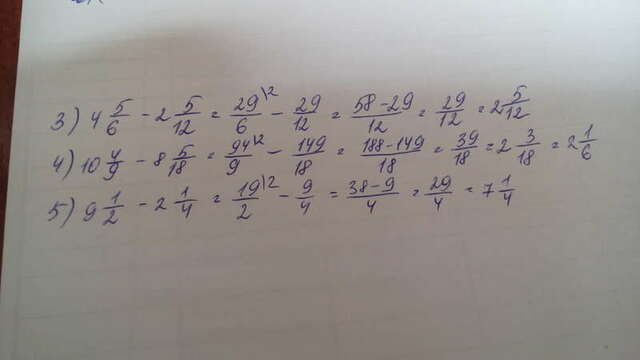 3) 4 5/6 - 2 5/12 = 29\2/6 - 29/12 = 58-29/12 = 29/12 = 2 5/12
4) 10 4/9 - 8 5/18 = 94\2/9 - 149/18 = 188-149/18 = 39/18 = 2 3/18 = 2 1/6
5) 9 1/2 - 2 1/4 = 19\2/2 - 9/4 = 38-9/4 = 29/4 = 7 1/4